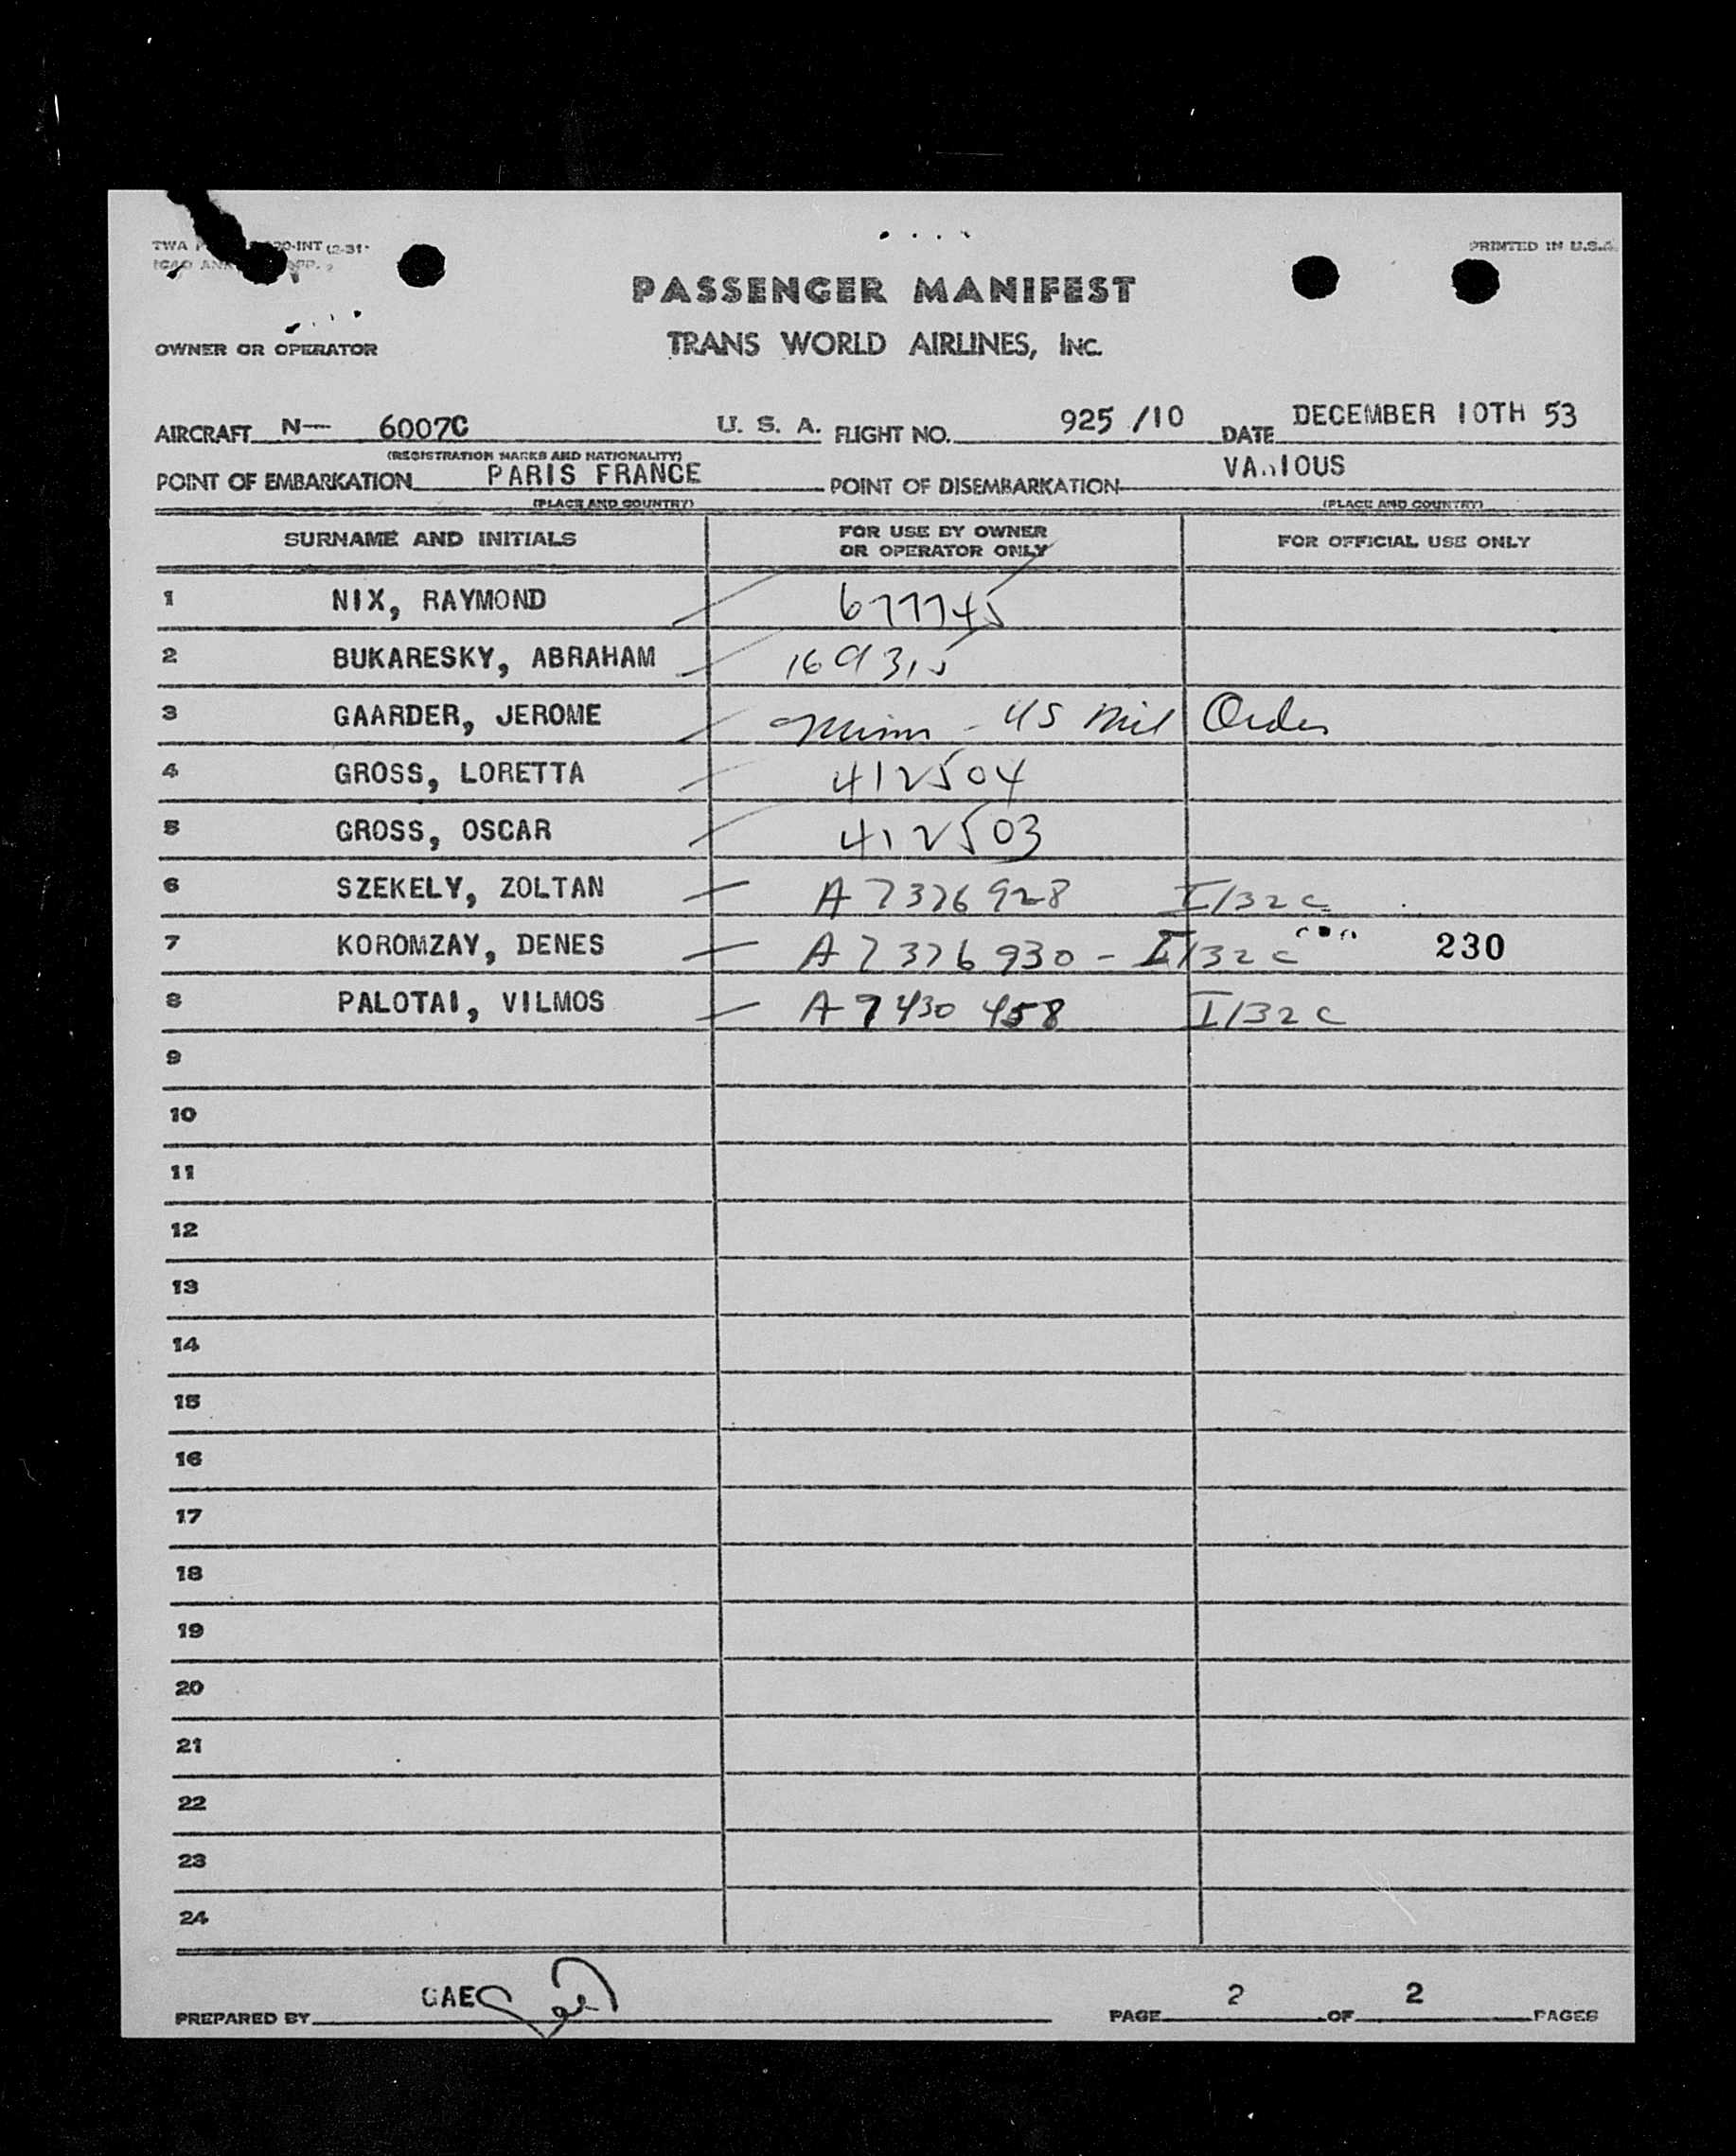 TWA 20-INT (2-51)
ICAO APP. 2
PRINTED IN U.S.A.
PASSENGER MANIFEST
OWNER OR OPERATOR TRANS WORLD AIRLINES, INC.
AIRCRAFT N— 6007C U. S. A. FLIGHT NO. 925 /10 DATE DECEMBER 10TH 53
(REGISTRATION MARKS AND NATIONALITY)
POINT OF EMBARKATION PARIS FRANCE POINT OF DISEMBARKATION VARIOUS
(PLACE AND COUNTRY) (PLACE AND COUNTRY)
SURNAME AND INITIALS FOR USE BY OWNER OR OPERATOR ONLY FOR OFFICIAL USE ONLY
1 NIX, RAYMOND 677745
2 BUKARESKY, ABRAHAM 169315
3 GAARDER, JEROME Minn - US Mil Order
4 GROSS, LORETTA 412504
5 GROSS, OSCAR 412503
6 SZEKELY, ZOLTAN A 7376 928 I/32c
7 KOROMZAY, DENES A 7376 930 - I/32c 230
8 PALOTAI, VILMOS A 7430 458 I/32c
9
10
11
12
13
14
15
16
17
18
19
20
21
22
23
24
PREPARED BY GAE PAGE 2 OF 2 PAGES